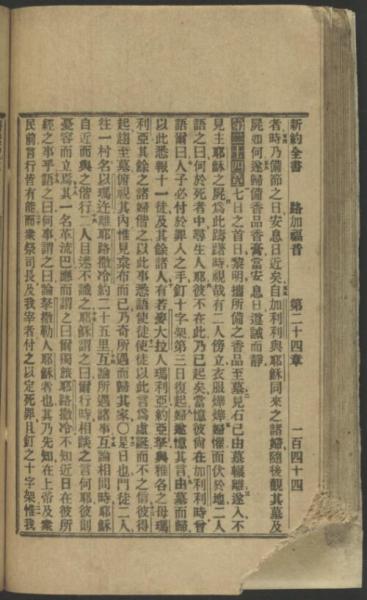 新約全書　路加福音　第二十四章　一百四十四
者時乃備節之日安息日近矣自加利利與耶穌同來之諸婦隨後觀其墓及
屍如何遂歸備香品香膏當安息日遵誡而靜
第二十四章 七日之首日黎明攜所備之香品至墓見石已由墓輾離遂入不
見主耶穌之屍爲此躊躇時視哉有二人傍立衣服燁燁婦懼而伏於地二人
語之曰何於死者中尋生人耶彼不在此乃已起矣當憶彼尙在加利利時曾
語爾曰人子必付於罪人之手釘十字架第三日復起婦遂憶其言由墓而歸
以此悉報十一徒及其餘諸人有若麥大拉人瑪利亞約亞拏與雅各之母瑪
利亞其餘之諸婦偕之以此事悉語使徒使徒以此言爲虛誕而不之信彼得
起趨至墓俯視其內惟見枲布而已乃奇所遇而歸其家〇是日也門徒二人
往一村名以瑪忤離耶路撒冷約二十五里互論所遇諸事互論相問時耶穌
自近而與之偕行二人目迷不識之耶穌謂之曰爾行時相談之言何耶彼則
憂容而立焉其一名革流巴應而謂之曰爾獨旅耶路撒冷不知近日在彼所
經之事乎語之曰何事謂之曰論拏撒勒人耶穌者也其乃先知在上帝及衆
民前言行皆有能而衆祭司長及我宰者付之以定死罪且釘之十字架惟我